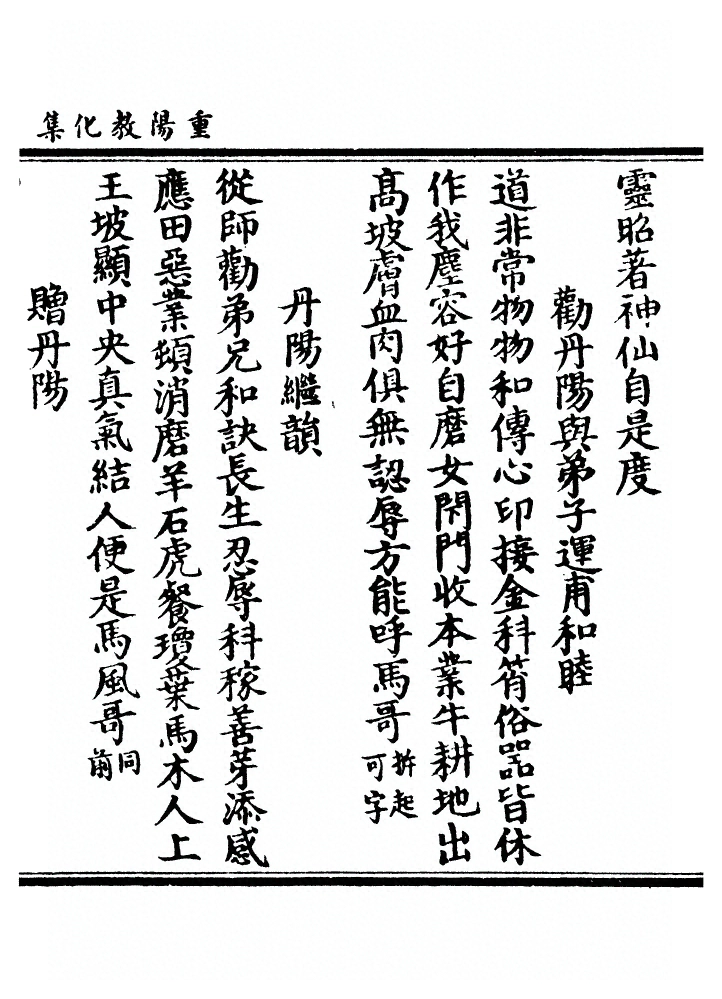 重陽教化集
靈昭著神仙自是度
勸丹陽與弟子運甫和睦
道非常物物和傳心印接金科筲俗器皆休
作我塵容好自磨女閇門收本業牛耕地出
髙坡膚血肉俱無認辱方能呼馬哥拆起可字
丹陽繼韻
從師勸弟兄和訣長生忍辱科稼善芽添感
應田惡業頓消磨羊石虎餐瓊葉馬木人上
王坡顯中央真氣結人便是馬風哥同前
贈丹陽